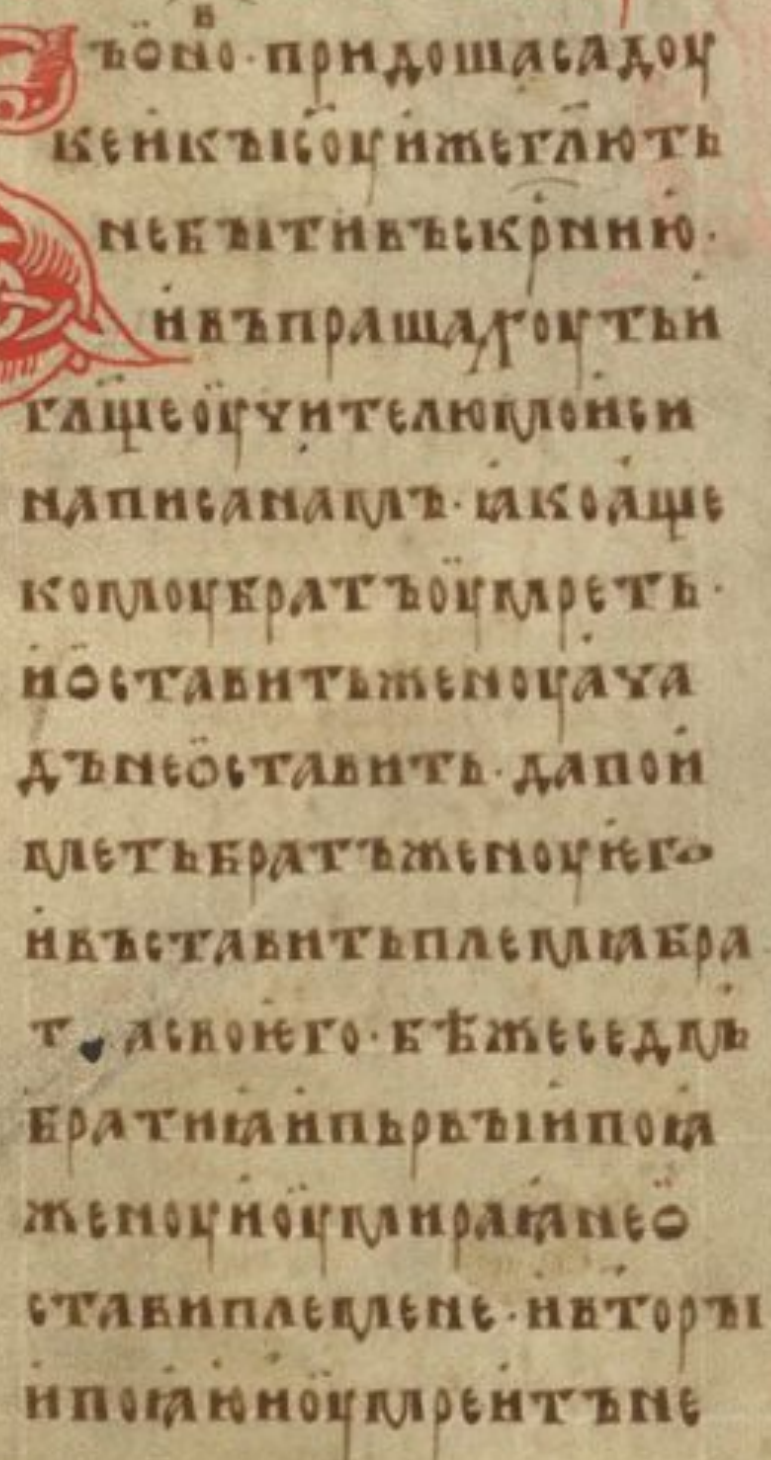 ъѡно в · придошасадоу
кеикъісоуижегл҃ють
небъітивъскр҃нию ·
ивъпрашахоутьи
гл҃щеоучителюмоиси
написанамъ · ꙗкоаще
комоубратъоумреть ·
иоставитьженоуача
дънеоставить · дапои
метьбратъженоуѥго
ивъставитьплемꙗбра
т асвоѥго · бѣжеседмь
братиꙗипьрвъіипоꙗ
женоуиоумираꙗнео
ставиплемене · ивторъі
ипоꙗюиоумреитъне